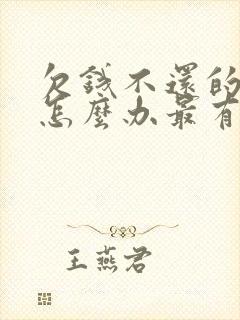 欠錢不還的
怎麼办最有
王燕君